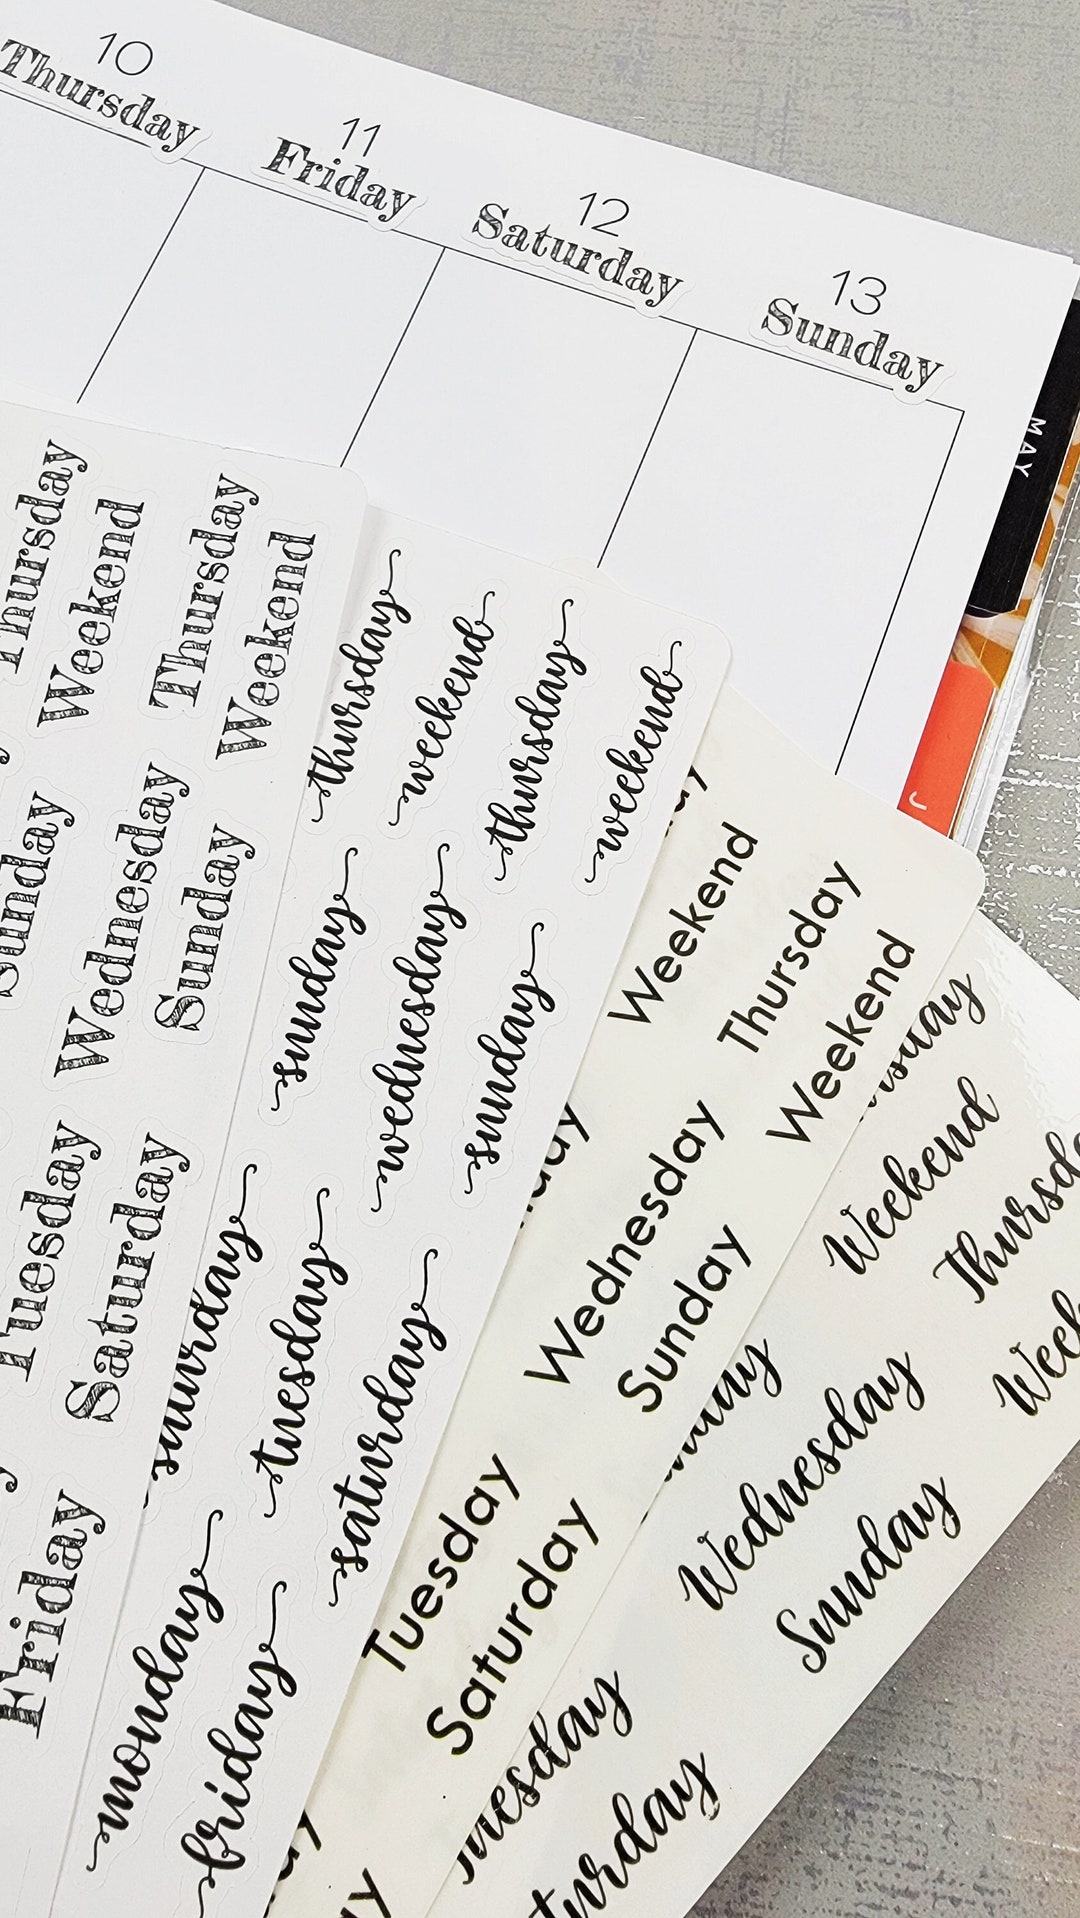 10
Thursday
11
Friday
12
Saturday
13
Sunday
MAY
J
Thursday
Weekend
Thursday
Weekend
Sunday
Wednesday
Sunday
Tuesday
Saturday
Friday
thursday
weekend
thursday
weekend
sunday
wednesday
sunday
saturday
tuesday
saturday
monday
friday
Weekend
Thursday
Weekend
Wednesday
Sunday
Tuesday
Saturday
Weekend
Thursd
Week
Wednesday
Sunday
uesday
turday